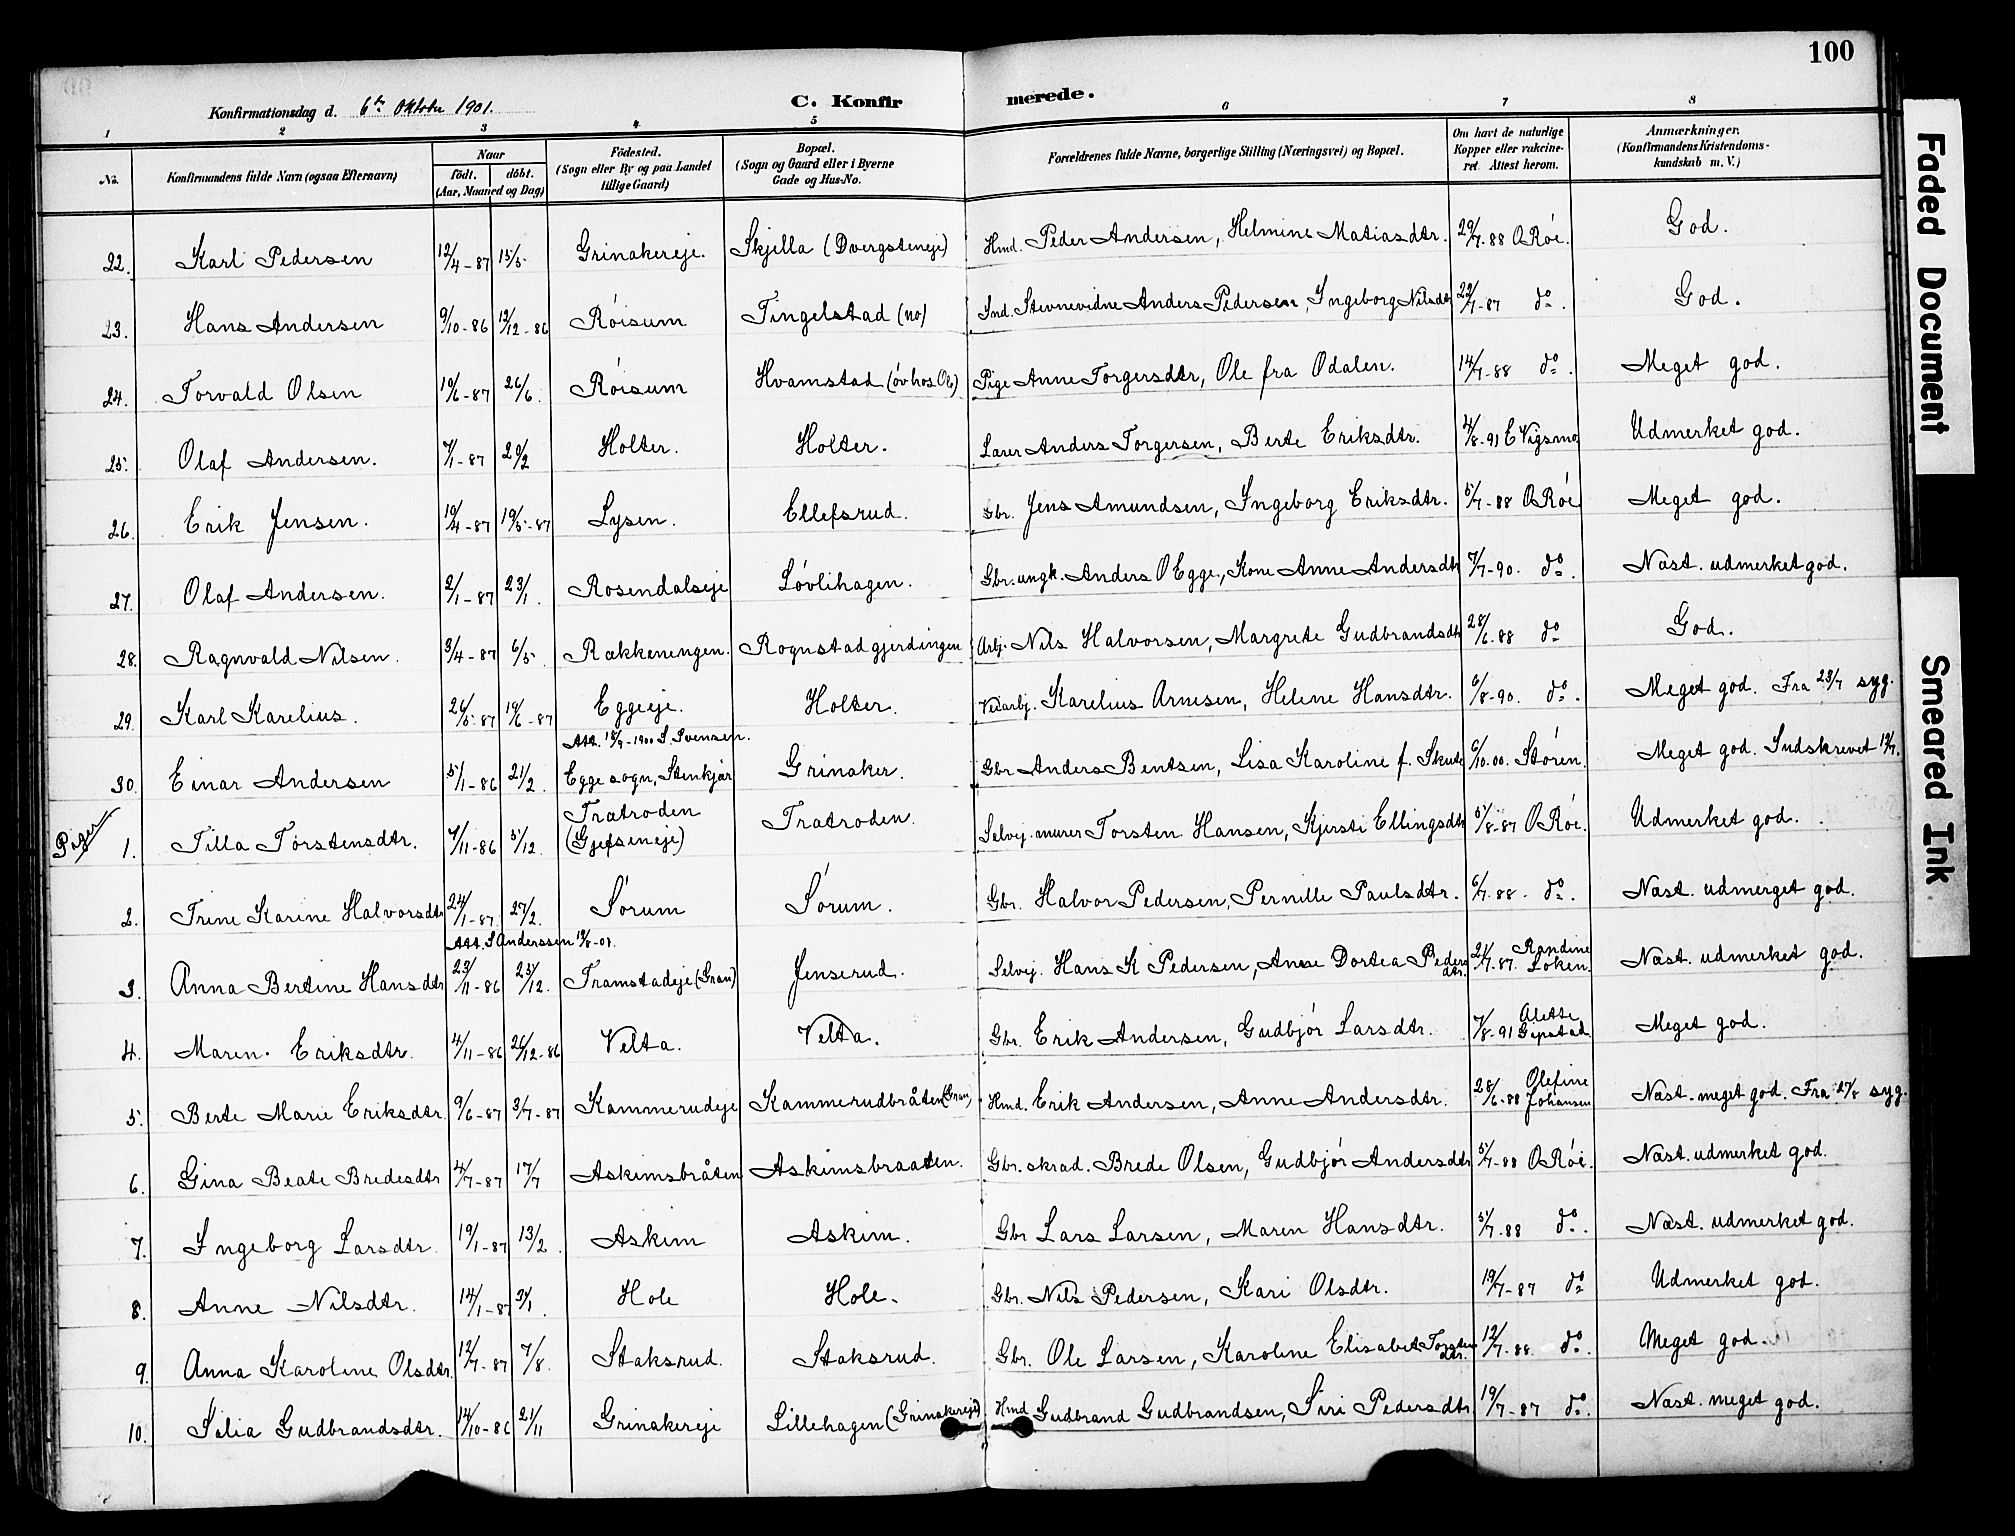 100
Konfirmationsdag d. 6te Oktober 1901.
C. Konfirmerede.
1 2 3 4 5 6 7 8
No. Konfirmandens fulde Navn (ogsaa Efternavn) Naar födt. döbt. (Aar, Maaned og Dag) Födested. (Sogn eller By og paa Landet tillige Gaard) Bopæl. (Sogn og Gaard eller i Byerne Gade og Hus-No. Forældrenes fulde Navne, borgerlige Stilling (Næringsvei) og Bopæl. Om havt de naturlige Kopper eller vakcineret. Attest herom. Anmærkninger. (Konfirmandens Kristendomskundskab m. V.)
22. Karl Pedersen 12/4-87 15/5 Grinakereje. Skjilla (Dvergsteneje) Hmd. Peder Andersen, Helmine Matiasdtr. 29/7-88 O Röe. God.
23. Hans Andersen 9/10-86 12/12-86 Röisum Tingelstad (no) Ind. Stevnevidne Anders Pedersen, Ingeborg Nilsdtr 22/7-87 do. God.
24. Torvald Olsen 10/6-87 26/6. Röisum Hvamstad (övhos Ole) Pige Anne Torgersdtr, Ole fra Odalen. 14/7-88 do. Meget god.
25. Olaf Andersen. 7/1-87 20/2 Holter. Holter. Lærer Anders Torgersen, Berte Eriksdtr. 4/8-91 E Vigsmo Udmerket god.
26. Erik Jensen. 10/4-87 19/5-87 Lysen. Ellefsrud. Gbr. Jens Amundsen, Ingeborg Eriksdtr. 5/7-88 O Röe Meget god.
27. Olaf Andersen. 2/1-87 23/1. Rosendalseje Lövlihagen. Gbr. ungk. Anders O Egge, Kone Anne Andersdtr 7/7-90. do. Næst. udmerket god.
28. Ragnvald Nilsen. 3/4-87 6/5. Rækkenengen. Rognstadgjerdingen Arbj. Nils Halvorsen, Margrete Gudbrandsdtr 28/6-88 do God.
29. Karl Karelius. 26/5-87 19/6-87 Eggeeje. Holter. Veiarbj. Karelius Arnesen, Helene Hansdtr. 6/8-90. do. Meget god. Fra 23/7 syg.
Att. 18/9-1900 S. Svensen.
30. Einar Andersen 5/1-86 21/2. Egge sogn, Stenkjær Grinaker. Gbr Anders Bentsen, Lisa Karoline f. Skute 6/10.00. Stören. Meget god. Indskrevet 12/7.
Piger
1. Tilla Torstensdtr. 7/11-86 5/12. Trætroden (Gjefseneje) Trætroden. Selvej. murer Torsten Hansen, Kjersti Ellingsdtr 5/8-87 O Röe. Udmerket god.
2. Trine Karine Halvorsdtr 24/1-87 27/2. Sörum Sörum. Gbr. Halvor Pedersen, Pernille Paulsdtr. 6/7-88. do. Næst. udmerget god.
Att. S Anderssen 19/8-01.
3. Anna Bertine Hansdtr 23/11-86 25/12. Tramstadeje (Gran) Jenserud. Selvej. Hans K Pedersen, Anne Dortea Pedersdtr. 21/7-87. Randine Loken Næst. udmerket god.
4. Maren Eriksdtr. 4/11-86 26/12-86 Velta. Velta. Gbr. Erik Andersen, Gudbjör Larsdtr. 7/8-91 Alette Meget god.
5. Berte Marie Eriksdtr. 9/6-87 3/7-87 Kammerudeje Kammerudbråten (Gran) Hmd. Erik Andersen, Anne Andersdtr. 28/6-88 Olefine Johansen Næst. meget god. Fra 27/8 syg.
6. Gina Beate Bredesdtr 4/7-87 17/7 Askimsbråten Askimsbraaten. Gbr. skrad. Brede Olsen, Gudbjör Andersdtr 5/7-88 O Röe. Næst. udmerket god.
7. Ingeborg Larsdtr. 19/1-87 13/2. Askim Askim. Gbr Lars Larsen, Maren Hansdtr. 5/7-88 do. Næst. udmerket god.
8. Anne Nilsdtr. 14/1-87 31/1. Hole Hole. Gbr. Nils Pedersen, Kari Olsdtr. 19/7-87 do Udmerket god.
9. Anna Karoline Olsdtr. 12/7-87 7/8. Staksrud. Staksrud. Gbr. Ole Larsen, Karoline Elisabet Torstensdtr. 12/7-88. do. Meget god.
10. Silia Gudbrandsdtr. 14/10-86 21/11 Grinakereje Lillehagen (Grinakereje) Hmd Gudbrand Gudbrandsen, Siri Pedersdtr. 19/7-87 do. Næst. meget god.
Faded Document
Smeared Ink